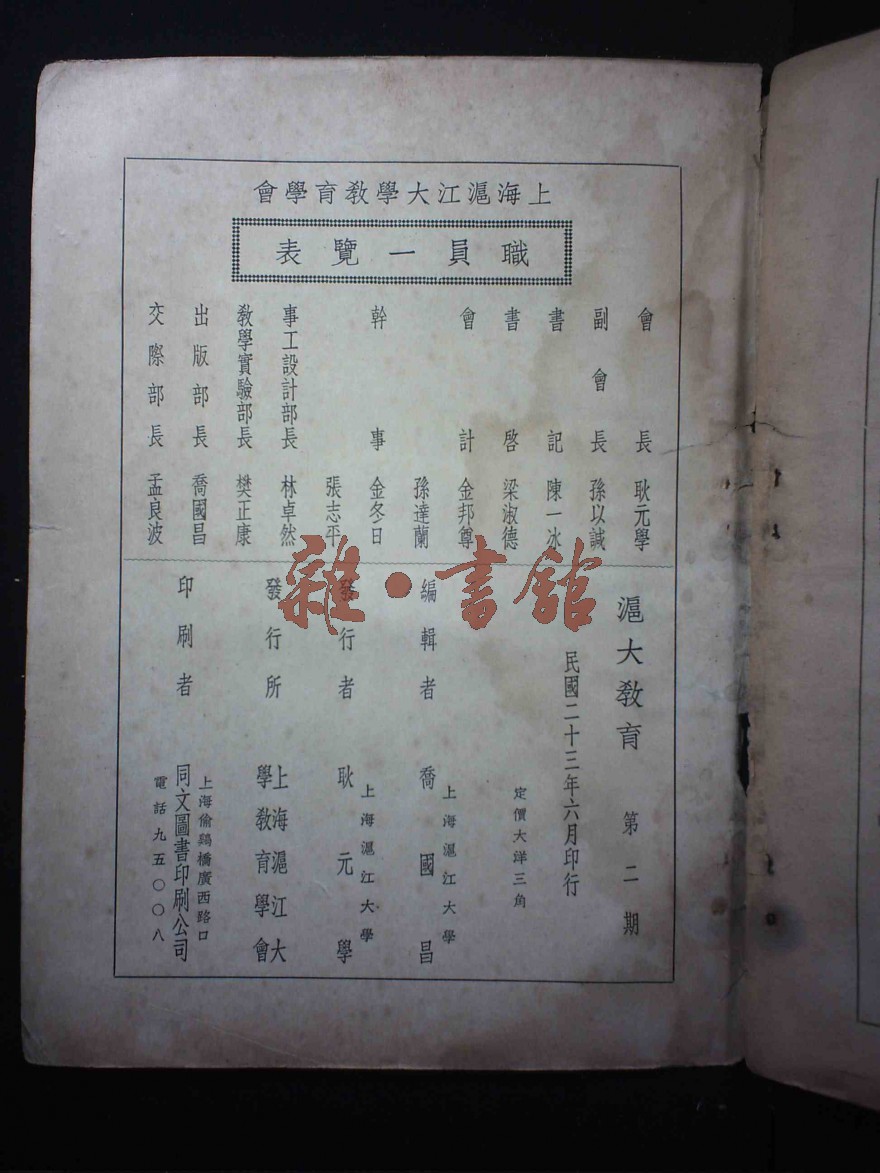 上海滬江大學教育學會
職員一覽表
會長 耿元學
副會長 孫以誠
書記 陳一冰
書啓 梁淑德
會計 金邦尊
孫達蘭
幹事 金冬日
張志平
事工設計部長 林卓然
教學實驗部長 樊正康
出版部長 喬國昌
交際部長 孟良波
滬大教育 第二期
民國二十三年六月印行
定價大洋三角
上海滬江大學
編輯者 喬國昌
上海滬江大學
發行者 耿元學
發行所 上海滬江大學教育學會
上海偷鷄橋廣西路口
印刷者 同文圖書印刷公司
電話九五〇〇八
雜·書館